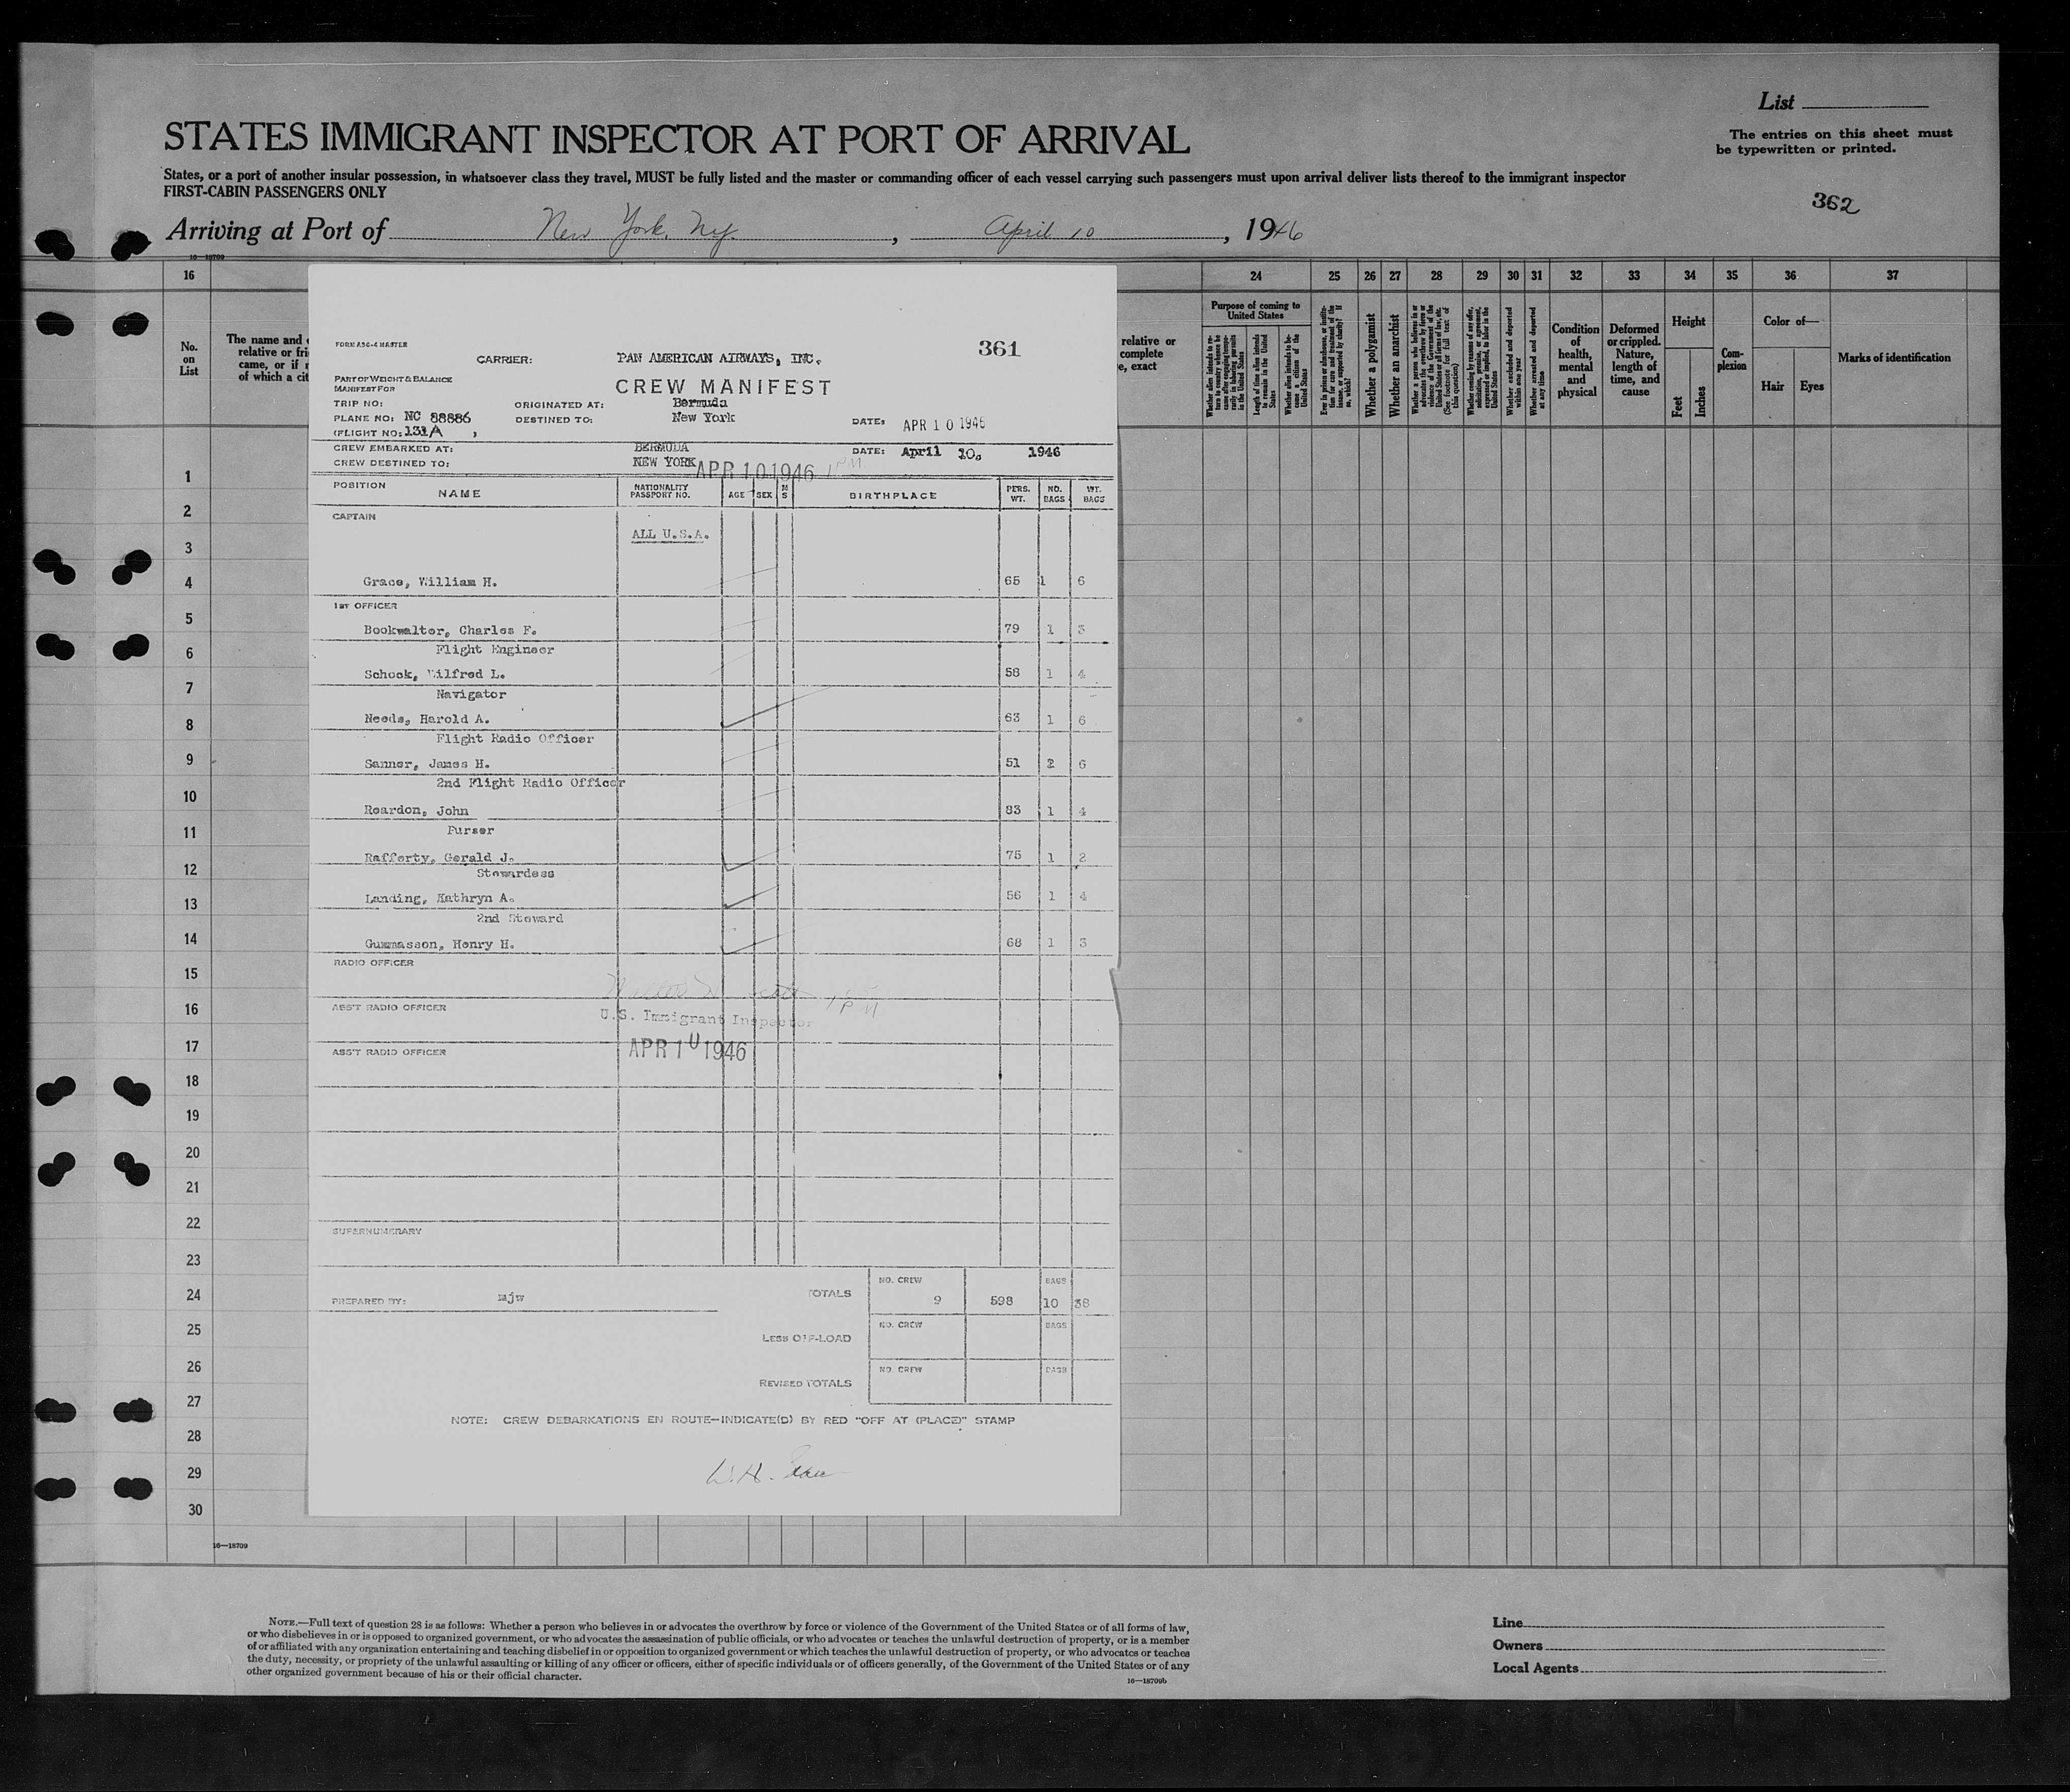 List
The entries on this sheet must
be typewritten or printed.
STATES IMMIGRANT INSPECTOR AT PORT OF ARRIVAL
States, or a port of another insular possession, in whatsoever class they travel, MUST be fully listed and the master or commanding officer of each vessel carrying such passengers must upon arrival deliver lists thereof to the immigrant inspector
FIRST-CABIN PASSENGERS ONLY
362
Arriving at Port of New York, NY. , April 10 , 1946
16—18709
16 24 25 26 27 28 29 30 31 32 33 34 35 36 37
No. on List
The name and
relative or fri
came, or if
of which a cit
relative or
complete
e, exact
Purpose of coming to United States
Whether a polygamist
Whether an anarchist
Condition of health, mental and physical
Deformed or crippled. Nature, length of time, and cause
Height
Feet
Inches
Com-plexion
Color of—
Hair
Eyes
Marks of identification
361
FORM ASC-C MASTER
CARRIER: PAN AMERICAN AIRWAYS, INC.
PART OF WEIGHT & BALANCE
MANIFEST FOR
CREW MANIFEST
TRIP NO: ORIGINATED AT: Bermuda
PLANE NO: NC 88886 DESTINED TO: New York DATE: APR 10 1946
(FLIGHT NO: 131A ,
CREW EMBARKED AT: BERMUDA DATE: April 10, 1946
CREW DESTINED TO: NEW YORK APR 10 1946 1 PM
POSITION NAME NATIONALITY PASSPORT NO. AGE SEX M S BIRTHPLACE PERS. WT. NO. BAGS WT. BAGS
CAPTAIN
ALL U.S.A.
Grace, William H. 65 1 6
1ST OFFICER
Bookwalter, Charles F. 79 1 3
Flight Engineer
Schock, Wilfred L. 58 1 4
Navigator
Needs, Harold A. 63 1 6
Flight Radio Officer
Sanner, James H. 51 2 6
2nd Flight Radio Officer
Reardon, John 83 1 4
Purser
Rafferty, Gerald J. 75 1 2
Stewardess
Landing, Kathryn A. 56 1 4
2nd Steward
Gummasson, Henry H. 68 1 3
RADIO OFFICER
1 PM
ASS'T RADIO OFFICER
U.S. Immigrant Inspector
ASS'T RADIO OFFICER
APR 10 1946
SUPERNUMERARY
PREPARED BY: mjw
TOTALS NO. CREW 9 598 BAGS 10 38
LESS OFF-LOAD NO. CREW BAGS
REVISED TOTALS NO. CREW BAGS
NOTE: CREW DEBARKATIONS EN ROUTE—INDICATE(D) BY RED "OFF AT (PLACE)" STAMP
W.H. Grace
1
2
3
4
5
6
7
8
9
10
11
12
13
14
15
16
17
18
19
20
21
22
23
24
25
26
27
28
29
30
16—18709
NOTE.—Full text of question 28 is as follows: Whether a person who believes in or advocates the overthrow by force or violence of the Government of the United States or of all forms of law,
or who disbelieves in or is opposed to organized government, or who advocates the assassination of public officials, or who advocates or teaches the unlawful destruction of property, or is a member
of or affiliated with any organization entertaining and teaching disbelief in or opposition to organized government or which teaches the unlawful destruction of property, or who advocates or teaches
the duty, necessity, or propriety of the unlawful assaulting or killing of any officer or officers, either of specific individuals or of officers generally, of the Government of the United States or of any
other organized government because of his or their official character.
16—18709b
Line
Owners
Local Agents